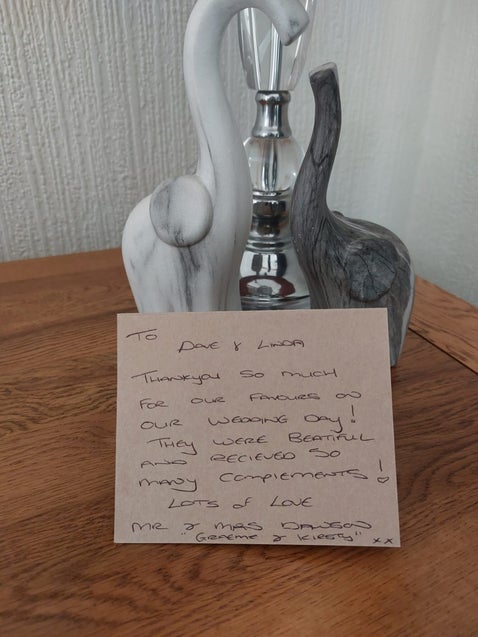 To
Dave & Linda
Thankyou so much
for our favours on
our wedding day!
They were beatiful
and recieved so
many complements!
Lots of love
Mr & Mrs Dawson
"Graeme & Kirsty" xx